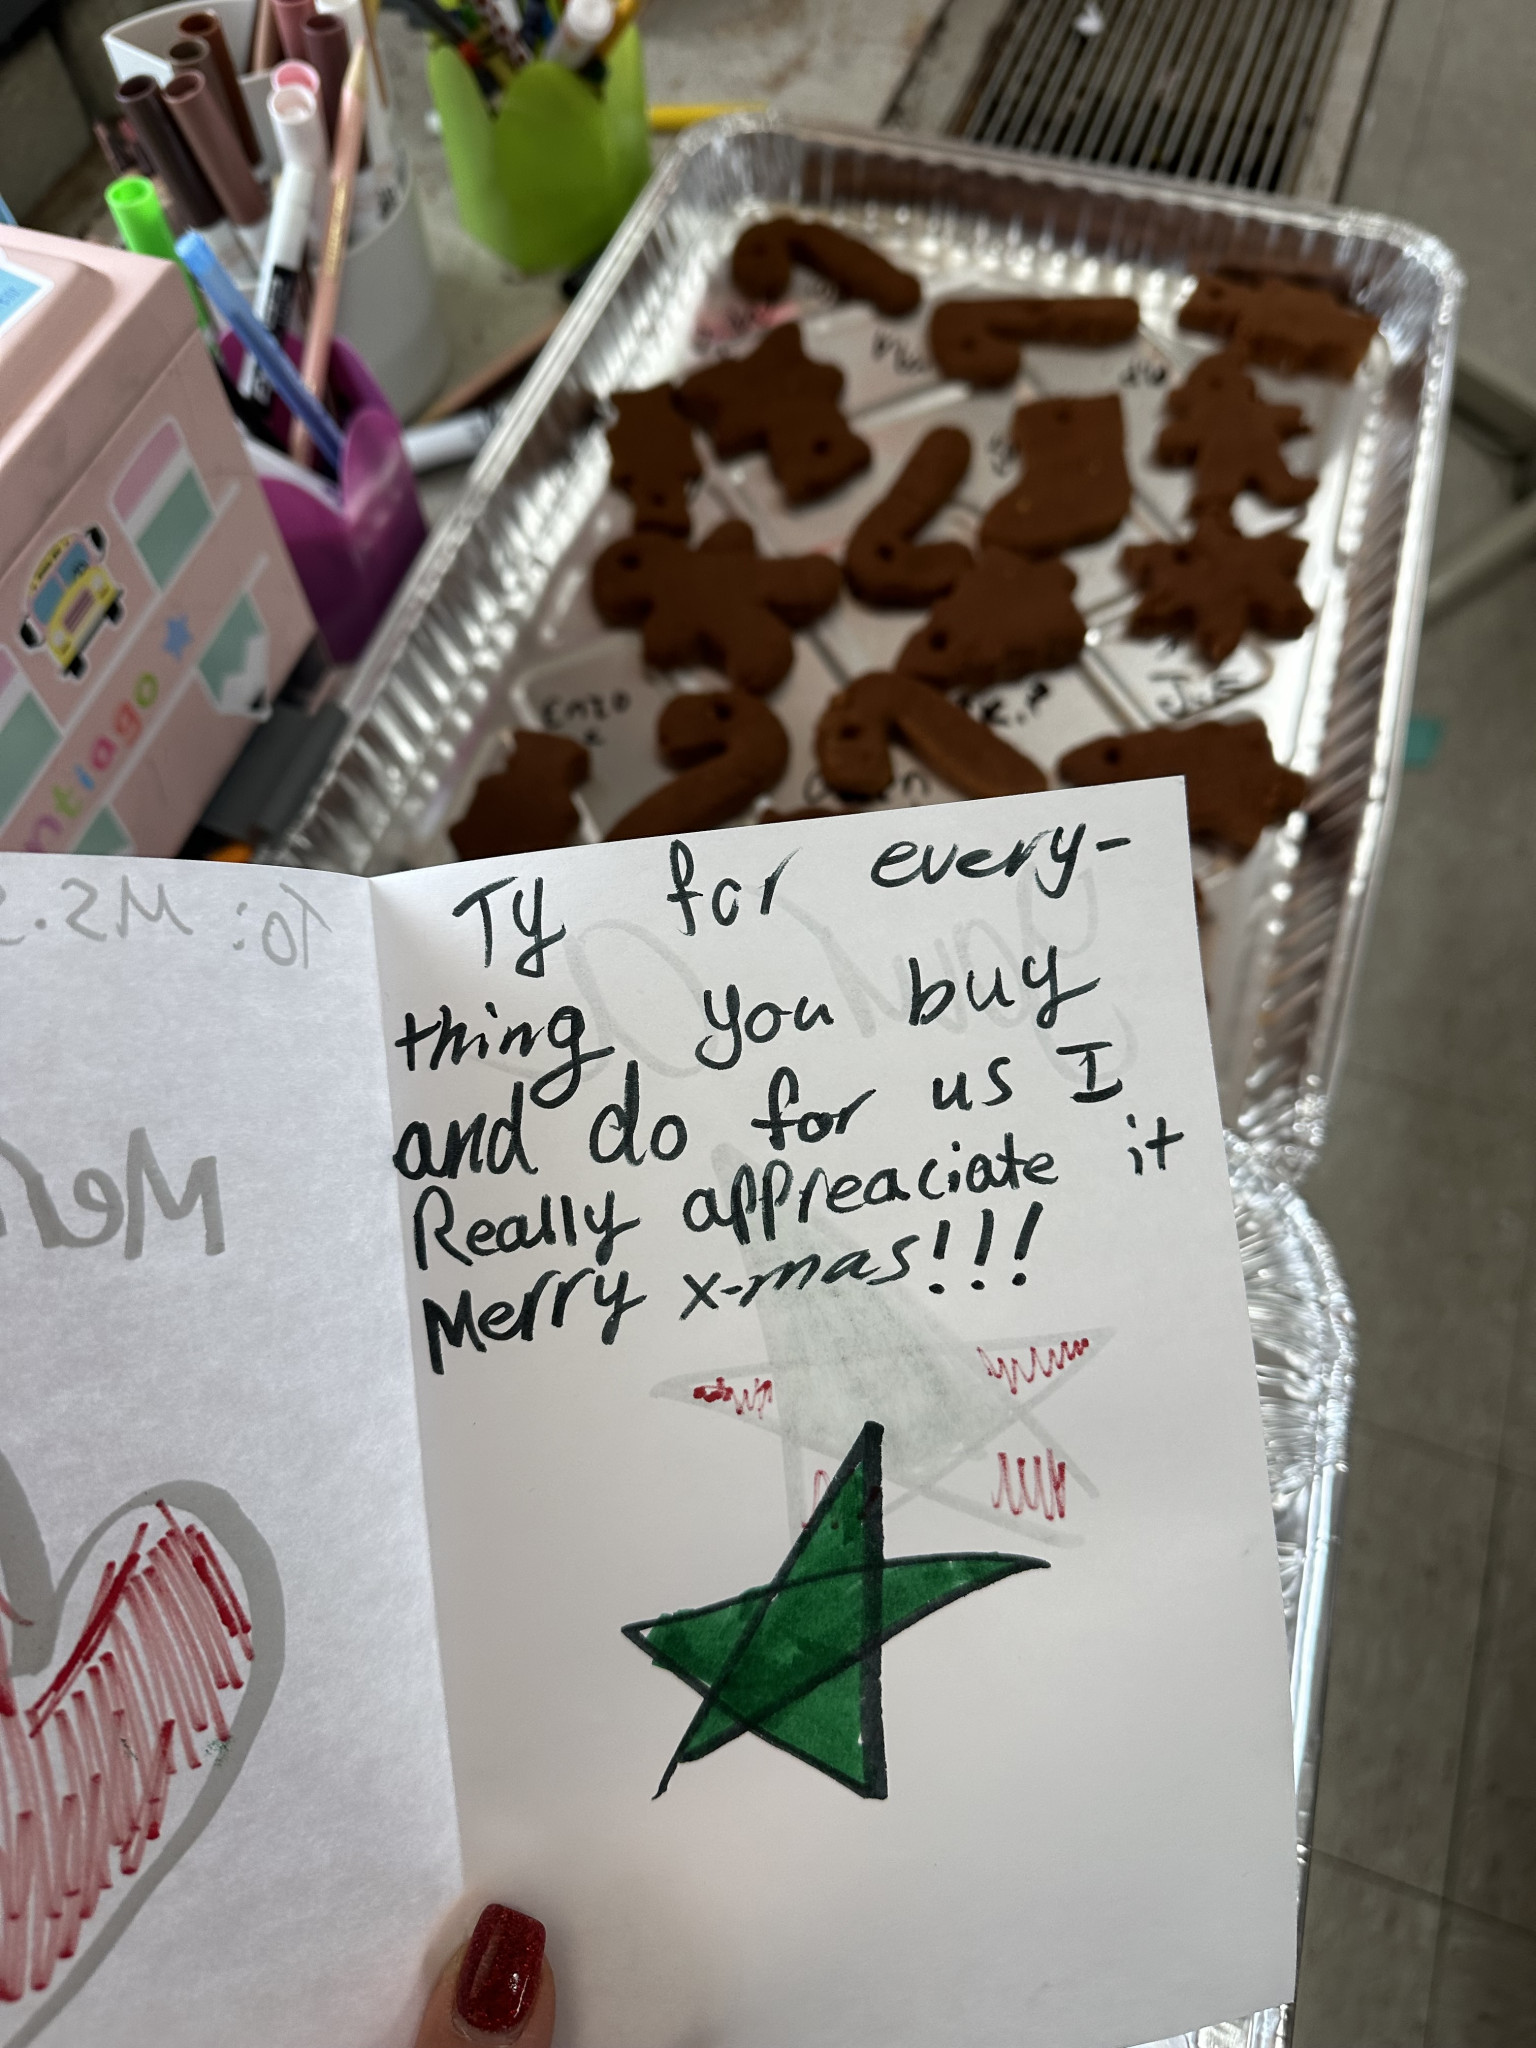 Enzo
To: Ms.
Mer
Ty for every-
thing you buy
and do for us I
Really appreaciate it
Merry x-mas!!!